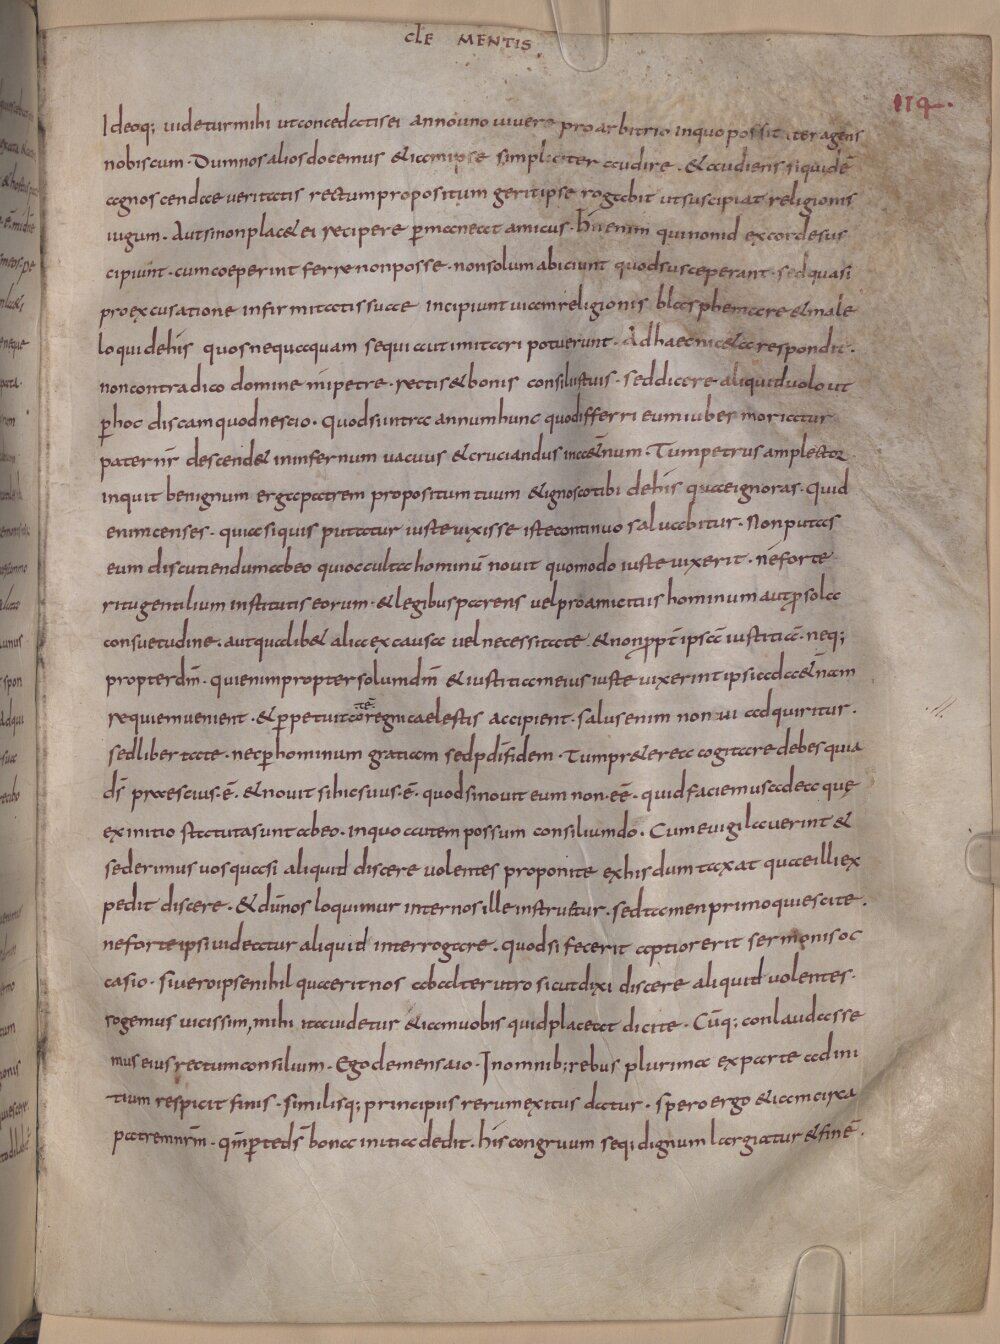 CLE MENTIS
114.
Ideoq; uidetur mihi ut concedatis ei anno uno uiuere pro arbitrio in quo possit iter agens
nobiscum · Dum nos alios docemus & iam ipse simpliciter audire · & audiens si quidē
agnoscendae ueritatis rectum propositum gerit ipse rogabit ut suscipiat religionis
iugum · Aut si non plac& ei recipere pmaneat amicus · hi enim qui non id ex corde sus
cipiunt · cum coeperint ferre non posse · non solum abiciunt quod susceperant · sed quasi
pro excusatione infirmitatis suae incipiunt uiam religionis blasphemare & male
loqui de his quos nequaquam sequi aut imitari potuerunt · Ad haec nic&a respondit ·
non contradico domine mi petre · rectis & bonis consiliis tuis · sed dicere aliquid uolo ut
p hoc discam quod nescio · Quod si intra annum hunc quo differri eum iubes moriatur
pater nr̄ descend& in infernum uacuus & cruciandus in a&ernum · Tum petrus amplector
inquit benignum erga patrem propositum tuum & ignosco tibi de his quae ignoras · Quid
enim censes · quia si quis putatur iuste uixisse iste continuo saluabitur · Non putas
eum discutiendum ab eo qui occulta hominū nouit quomodo iuste uixerit · ne forte
ritu gentilium institutis eorum · & legibus parens uel pro amicitiis hominum aut p sola
consuetudine · aut qualib& alia ex causa uel necessitate & non ppt ipsā iustitiā · neq;
propter dm̄ · qui enim propter solum dm̄ & iustitiam eius iuste uixerint ipsi ad a&nam
requiem uenient · & ppetuitatē regni caelestis accipient · salus enim non ui adquiritur ·
sed libertate · nec p hominum gratiam sed p dī fidem · Tum pr&erea cogitare debes quia
dš praescius · ē · & nouit si hic suus · ē · quod si nouit eum non · eē · quid faciemus ad ea quę
ex initio statuta sunt ab eo · in quo autem possum consilium do · Cum euigilauerint &
sederimus uos quasi aliquid discere uolentes proponite ex his dumtaxat quae illi ex
pedit discere · & dū nos loquimur inter nos ille instruetur · sed tamen primo quiescite ·
ne forte ipsi uideatur aliquid interrogare · quod si fecerit aptior erit sermonis oc
casio · si uero ipse nihil quaerit nos ab alterutro sicut dixi discere aliquid uolentes ·
rogemus uicissim, mihi ita uidetur & iam uobis quid placeat dicite · Cūq; conlaudasse
mus eius rectum consilium · Ego clemens aio · In omnib; rebus plurima ex parte ad ini
tium respicit finis · similisq; principiis rerum exitus datur · spero ergo & iam circa
patrem nrm̄ · qm̄ p te ds̄ bona initia dedit · his congruum sequi dignum largiatur & finē ·